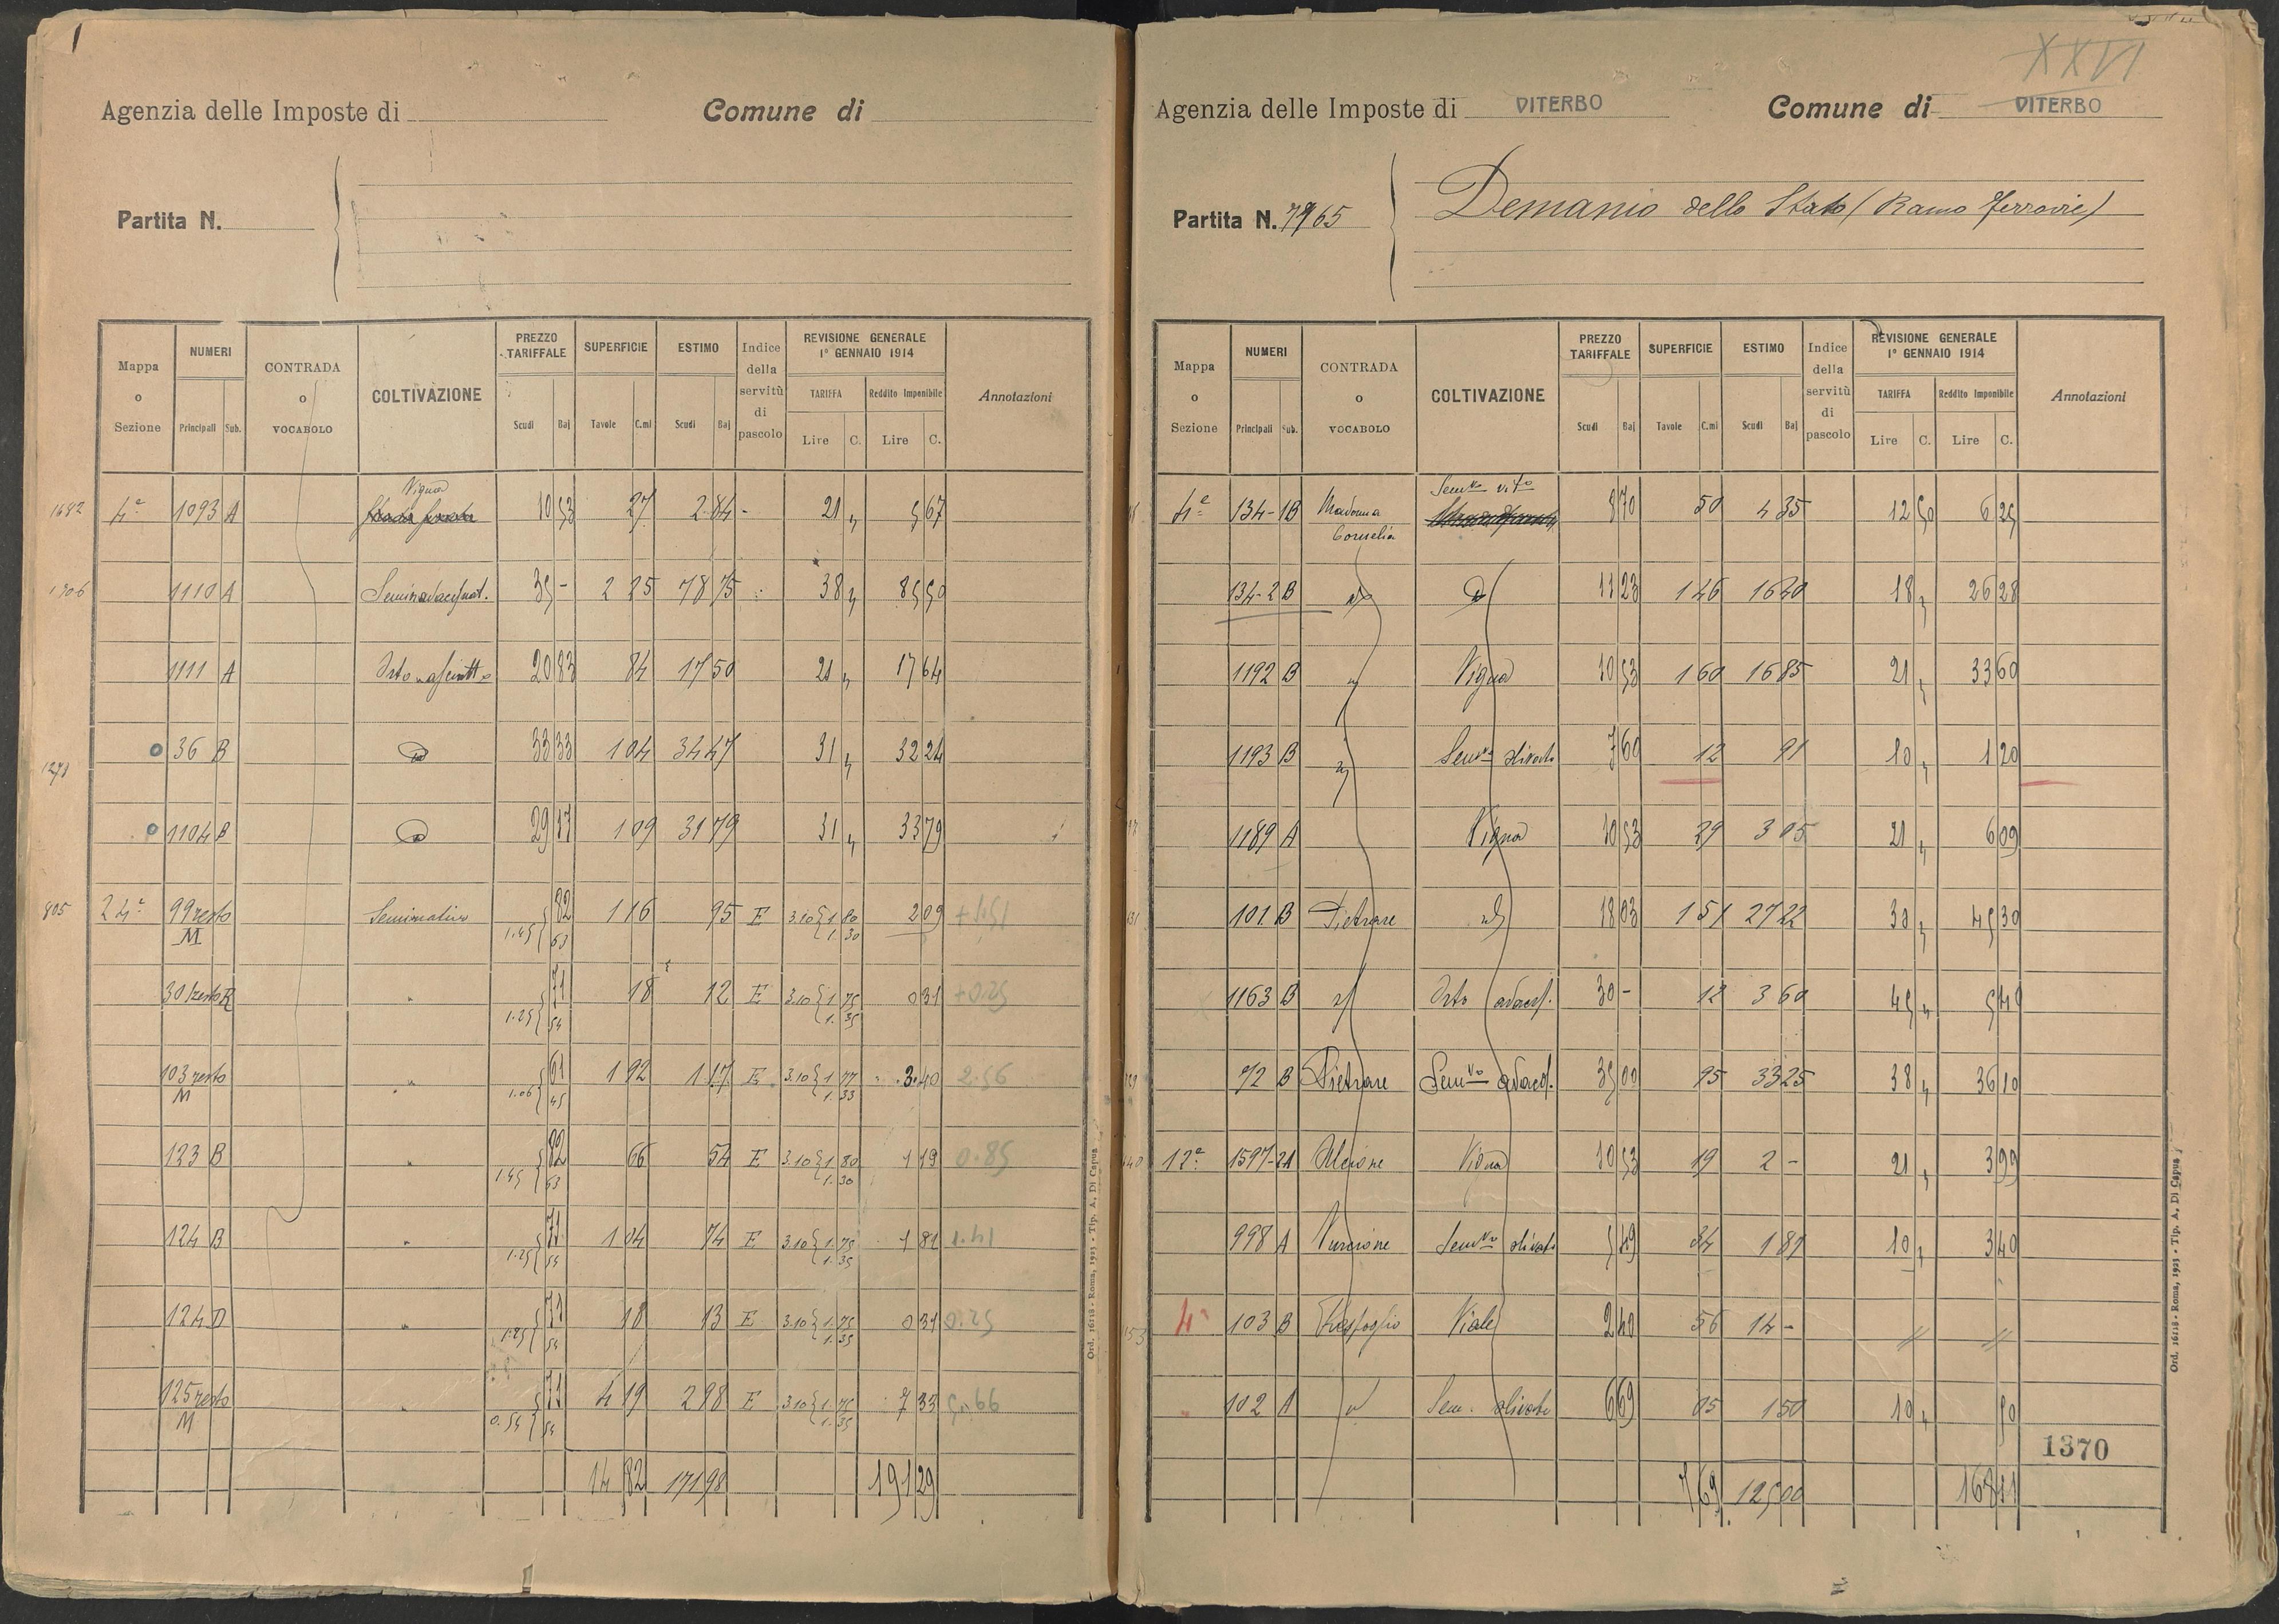 Agenzia delle Imposte di Comune di
Partita N.
Mappa o Sezione NUMERI CONTRADA o VOCABOLO COLTIVAZIONE PREZZO TARIFFALE SUPERFICIE ESTIMO Indice della servitù di pascolo REVISIONE GENERALE 1° GENNAIO 1914 Annotazioni
TARIFFA Reddito Imponibile
Principali Sub. Scudi Baj Tavole C.mi Scudi Baj Lire C. Lire C.
Vigna
1682 4ª 1093 A 10 53 27 2 84 - 21 " 5 67
1706 1110 A Semin adacquat. 35 - 2 25 78 75 38 " 85 50
1111 A Orto asciutto 20 83 84 17 50 21 " 17 64
36 B D 33 33 1 04 34 47 31 " 32 24
1104 B D 29 17 1 09 31 79 31 " 33 79
805 24ª 99 resto M Seminativo 1.45 82 63 1 16 95 E 3.10 1 80 1. 30 2 09 +1.51
301 resto R " 1.25 71 54 18 12 E 3.10 1 75 1. 35 0 31 +0.25
103 resto M " 1.06 61 45 1 92 1 17 E 3.10 1 77 1. 33 3.40 2.56
123 B " 1.45 82 63 66 54 E 3.10 1 80 1. 30 1 19 0.85
124 B " 1.25 71 54 1 04 74 E 3.10 1 75 1. 35 1 81 1.41
124 D " 1.25 71 54 18 13 E 3.10 1 75 1. 35 0 31 0.25
125 resto M " 0.54 71 54 4 19 2 98 E 3.10 1 75 1. 35 7 33 5.66
14 82 171 98 191 29
Ord. 16118 - Roma, 1923 - Tip. A. Di Capua
XXVI
Agenzia delle Imposte di VITERBO Comune di VITERBO
Partita N. 7965 Demanio dello Stato (Ramo Ferrovie)
Mappa o Sezione NUMERI CONTRADA o VOCABOLO COLTIVAZIONE PREZZO TARIFFALE SUPERFICIE ESTIMO Indice della servitù di pascolo REVISIONE GENERALE 1° GENNAIO 1914 Annotazioni
TARIFFA Reddito Imponibile
Principali Sub. Scudi Baj Tavole C.mi Scudi Baj Lire C. Lire C.
Semvo vito
4ª 134-1 B Madonna Cornelia 8 70 50 4 35 12 50 6 25
134-2 B D D 11 23 1 46 16 40 18 " 26 28
1192 B " Vigna 10 53 1 60 16 85 21 " 33 60
1193 B " Semvo olivato 7 60 12 91 10 " 1 20
1189 A Vigna 10 53 29 3 05 21 " 6 09
101 B Pietrare 18 03 1 51 27 22 30 " 45 30
1163 B Orto adacq. 30 - 12 3 60 45 " 5 40
72 B Pietrare Semvo adacq. 35 00 95 33 25 38 " 36 10
12ª 1597-2A Vigna 10 53 19 2 - 21 " 3 99
998 A Semvo olivato 5 49 34 1 87 10 " 3 40
4ª 103 B Viale 2 40 56 14 - // //
102 A Sem. olivato 6 69 05 1 50 10 " 50
1370
7 69 125 00 168 11
Ord. 16118 - Roma, 1923 - Tip. A. Di Capua